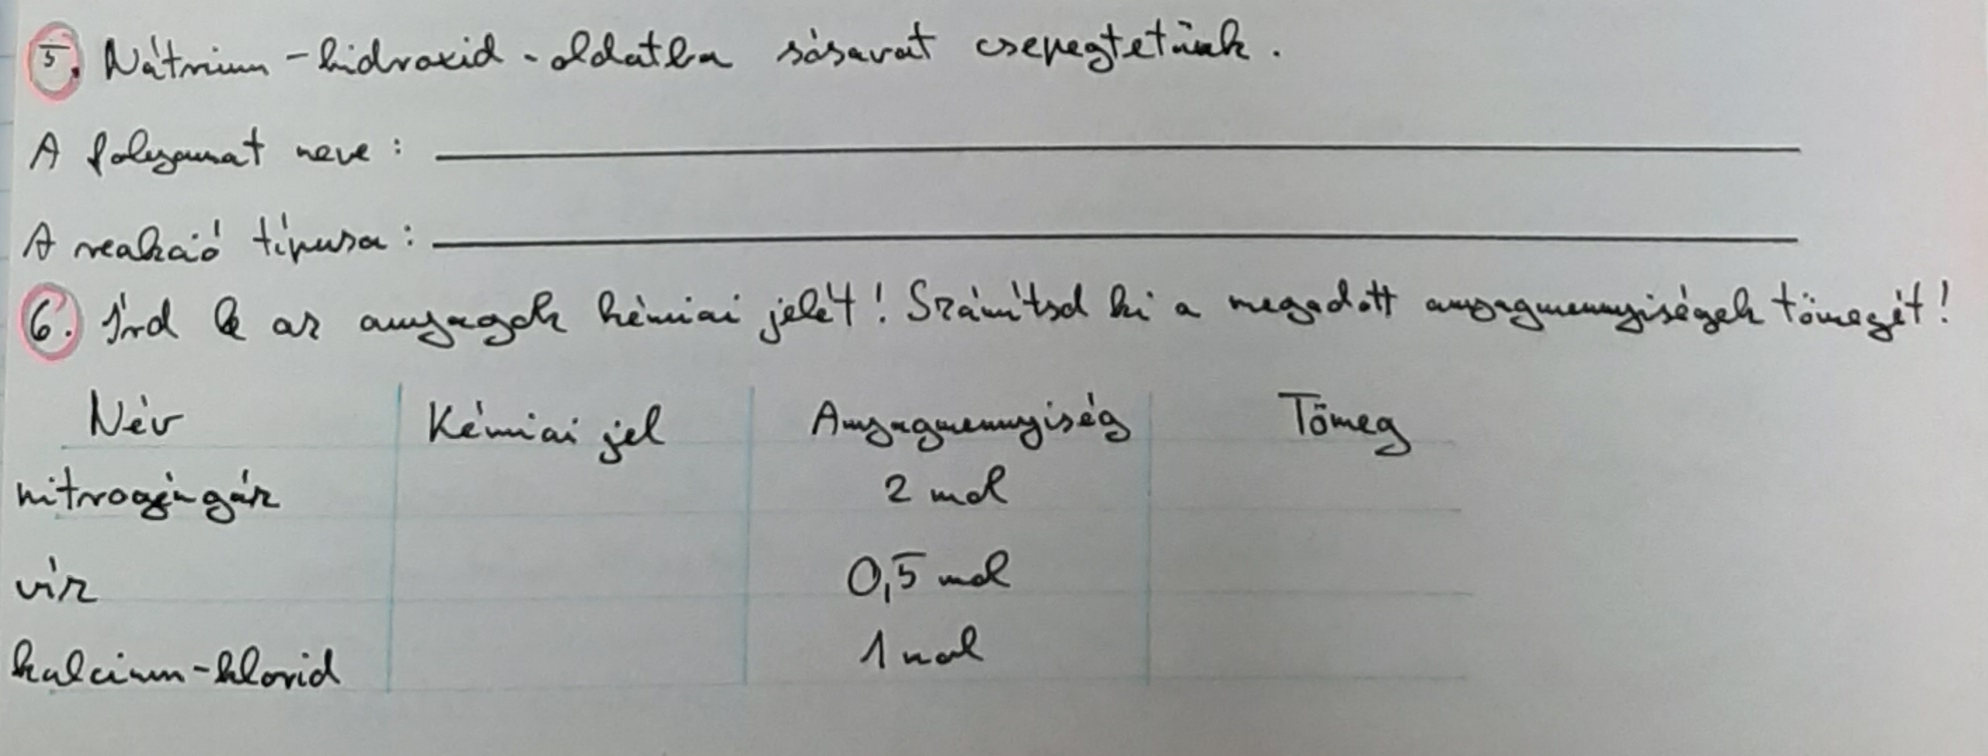 5. Nátrium-hidroxid-oldatba sósavat csepegtetünk.
A folyamat neve:
A reakció típusa:
6. Írd le az anyagok kémiai jelét! Számítsd ki a megadott anyagmennyiségek tömegét!
Név Kémiai jel Anyagmennyiség Tömeg
nitrogéngáz 2 mol
víz 0,5 mol
kalcium-klorid 1 mol